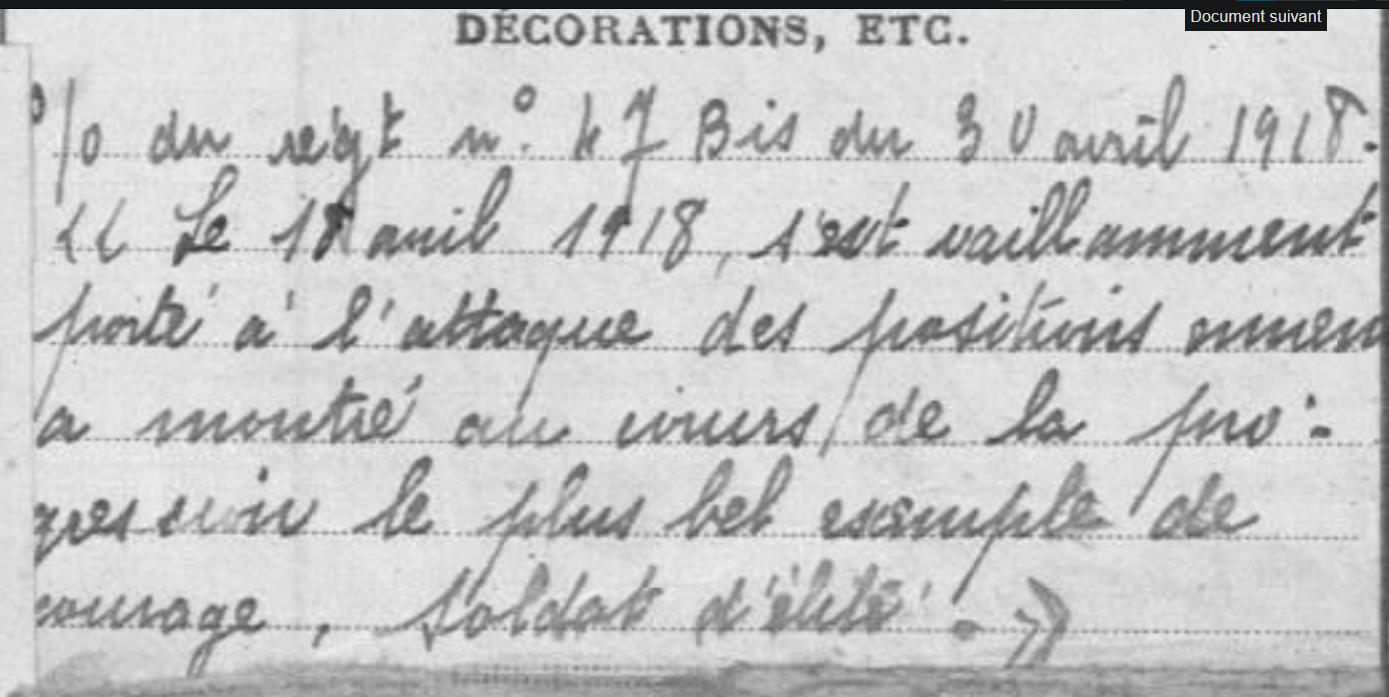 Document suivant
DÉCORATIONS, ETC.
O/O du régt n° 47 Bis du 30 avril 1918.
" Le 18 avril 1918, s'est vaillamment
porté à l'attaque des positions ennem
a montré au cours de la pro-
gression le plus bel exemple de
courage, Soldat d'élite. »